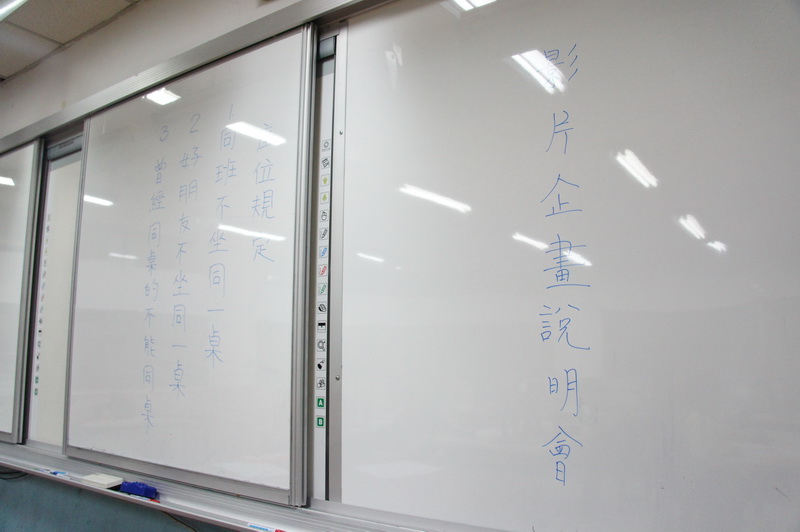 影片企畫說明會
座位規定
1同班不坐同一桌
2好朋友不坐同一桌
3曾經同桌的不能同桌
A
B